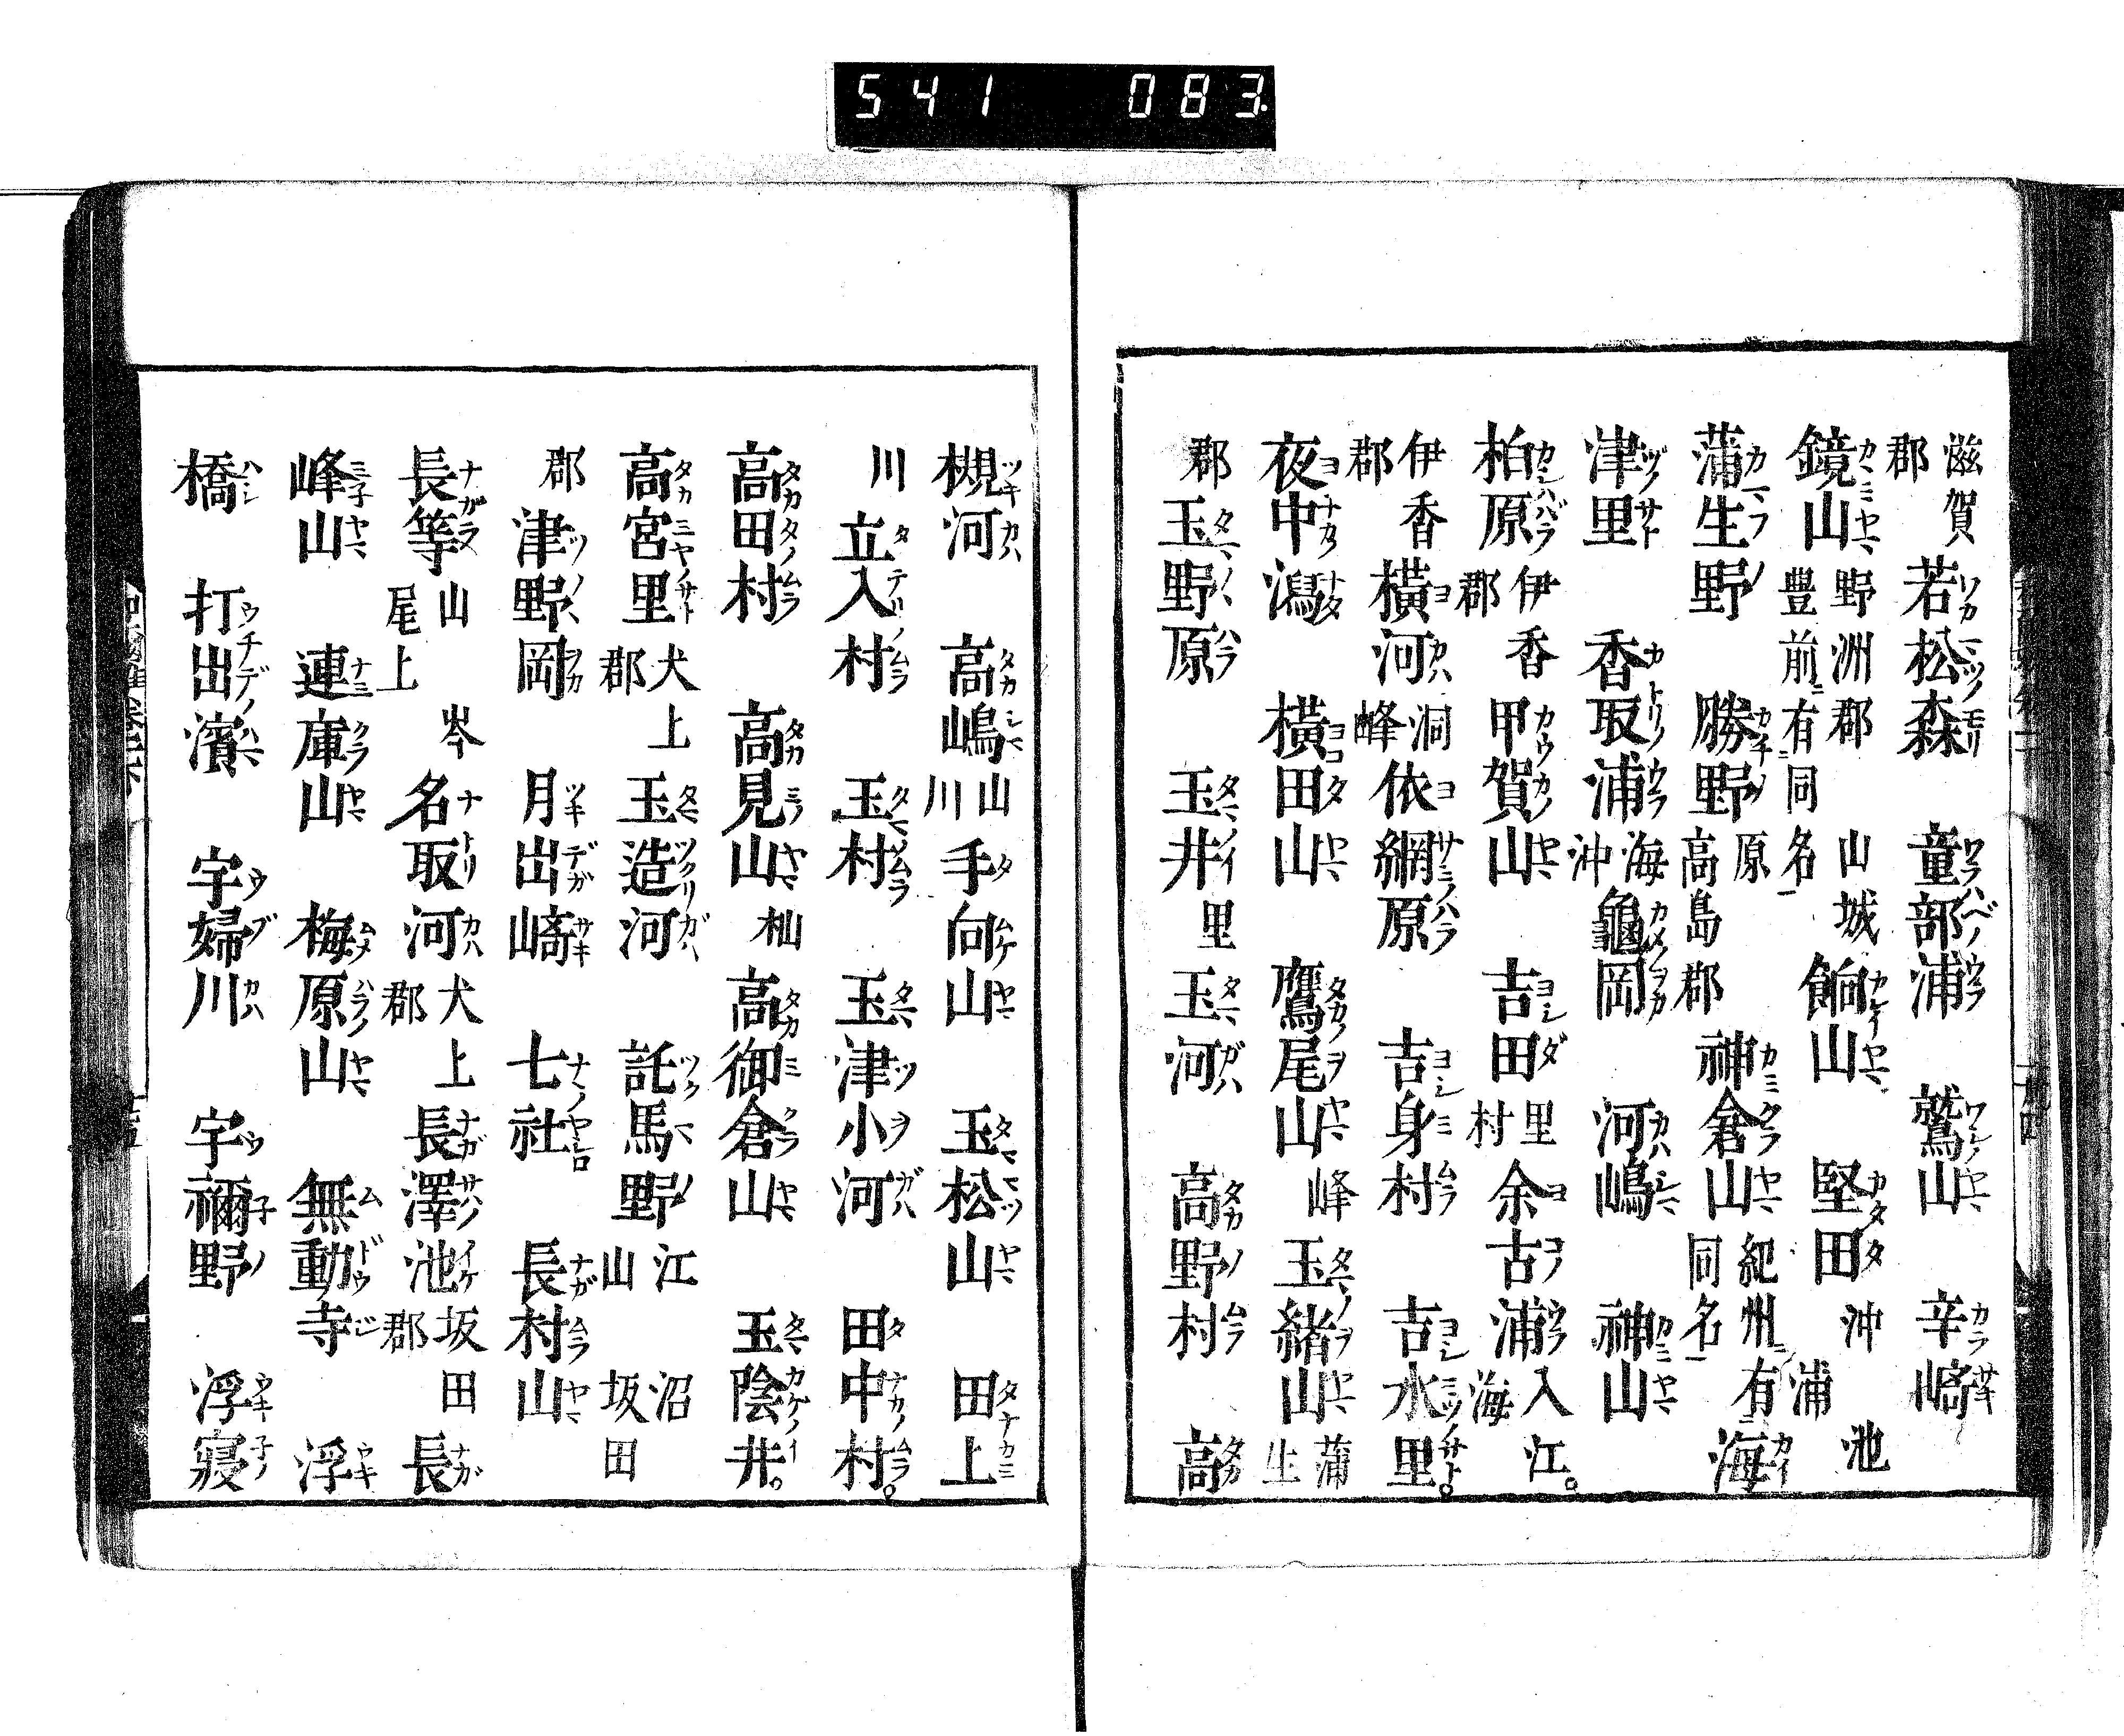 541 083
滋賀郡 若松森 童部浦 鷲山 辛崎
鏡山 野洲郡 豊前ニ有同名 山城 餉山 堅田 沖 浦 池
蒲生野 勝野 原 高島郡 神倉山 紀州ニ有同名 海
津里 香取浦 海 沖 龜岡 河嶋 神山
柏原 伊香郡 甲賀山 吉田 里 村 余古浦 海 入江。
伊香郡 横河 洞 峰 依網原 吉身村 吉水里。
夜中潟 横田山 鷹尾山 峰 玉緒山 蒲生
郡 玉野原 玉井 里 玉河 高野村 高
槻河 高嶋 山 川 手向山 玉松山 田上
川 立入村 玉村 玉津小河 田中村。
高田村 高見山 杣 高御倉山 玉陰井。
高宮里 犬上郡 玉造河 託馬野 江 山 沼 坂田
郡 津野岡 月出崎 七社 長村山
長等 山 尾上 岑 名取河 犬上郡 長澤池 坂田郡 長
峰山 連庫山 梅原山 無動寺 浮
橋 打出濱 宇婦川 宇禰野 浮寢